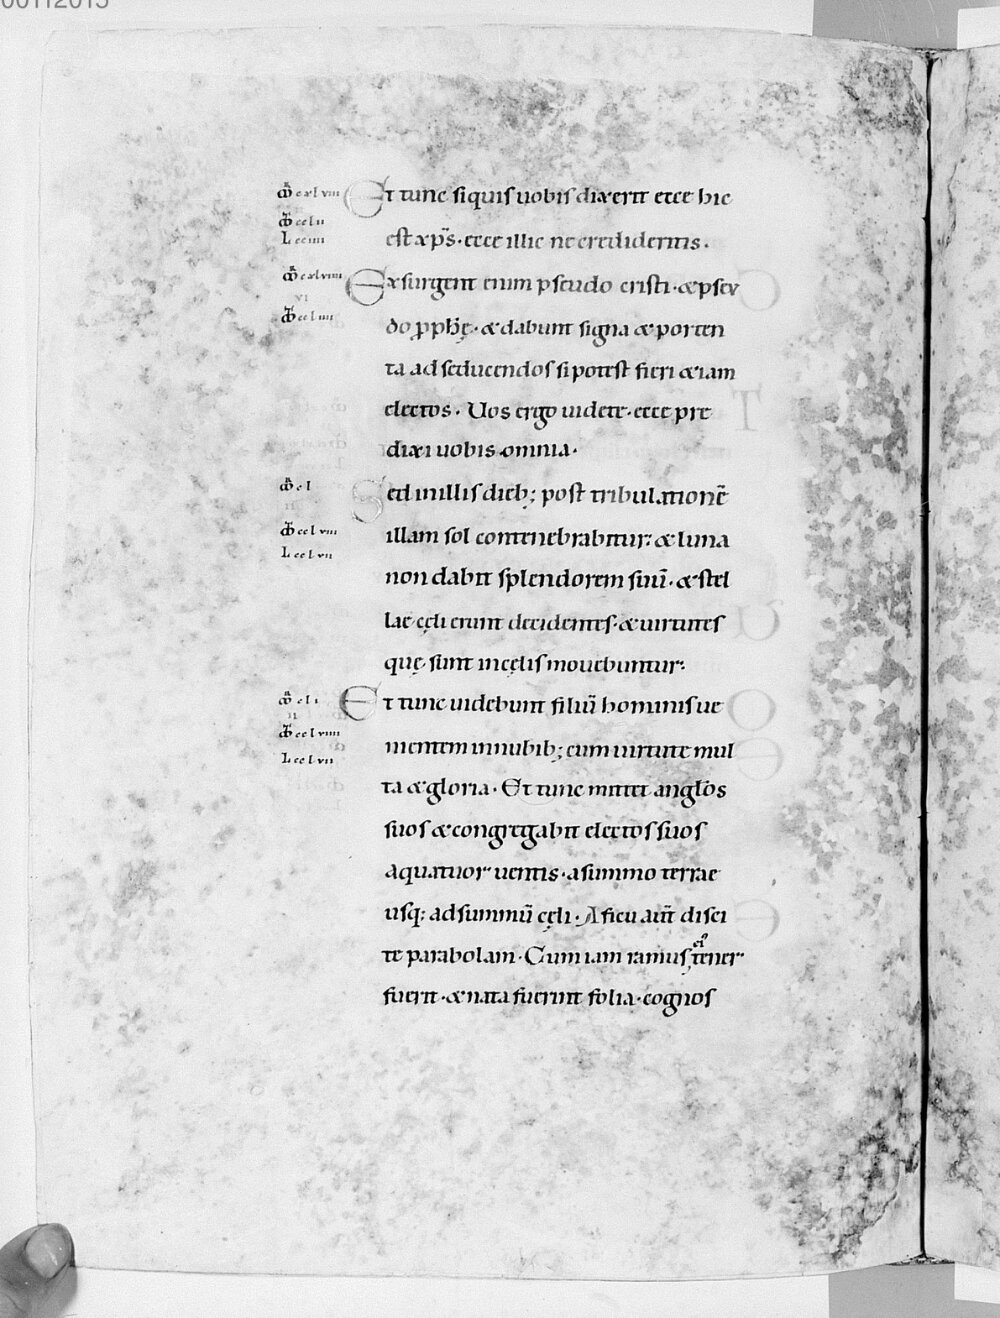 00112015
Et tunc siquis uobis dixerit ecce hic
est xp̄s· ecce illic ne credideritis·
Exsurgent enim pseudo cristi· &pseu
do ꝓph̄ę· &dabunt signa & porten
ta ad seducendos si potest fieri &iam
electos· Uos ergo uidete· ecce pre
dixi uobis omnia·
Sed inillis dieb; post tribulationē
illam sol contenebrabitur: & luna
non dabit splendorem suū· & stel
lae cęli erunt decidentes· & uirtutes
quę sunt incęlis mouebuntur:
Et tunc uidebunt filiū hominis ue
nientem innubib; cum uirtute mul
ta & gloria· Et tunc mittet anglōs
suos & congregabit electos suos
aquattuor uentis· asummo terrae
usq: adsummū cęli· Aficu aūt disci
te parabolam· Cum iam ramus ei' tener
fuerit· & nata fuerint folia· cognos